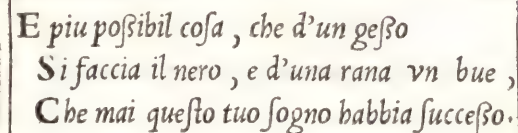 E piu poſsibil coſa, che d'un geſso
Si faccia il nero, e d'una rana vn bue,
Che mai queſto tuo ſogno habbia ſucceſso.